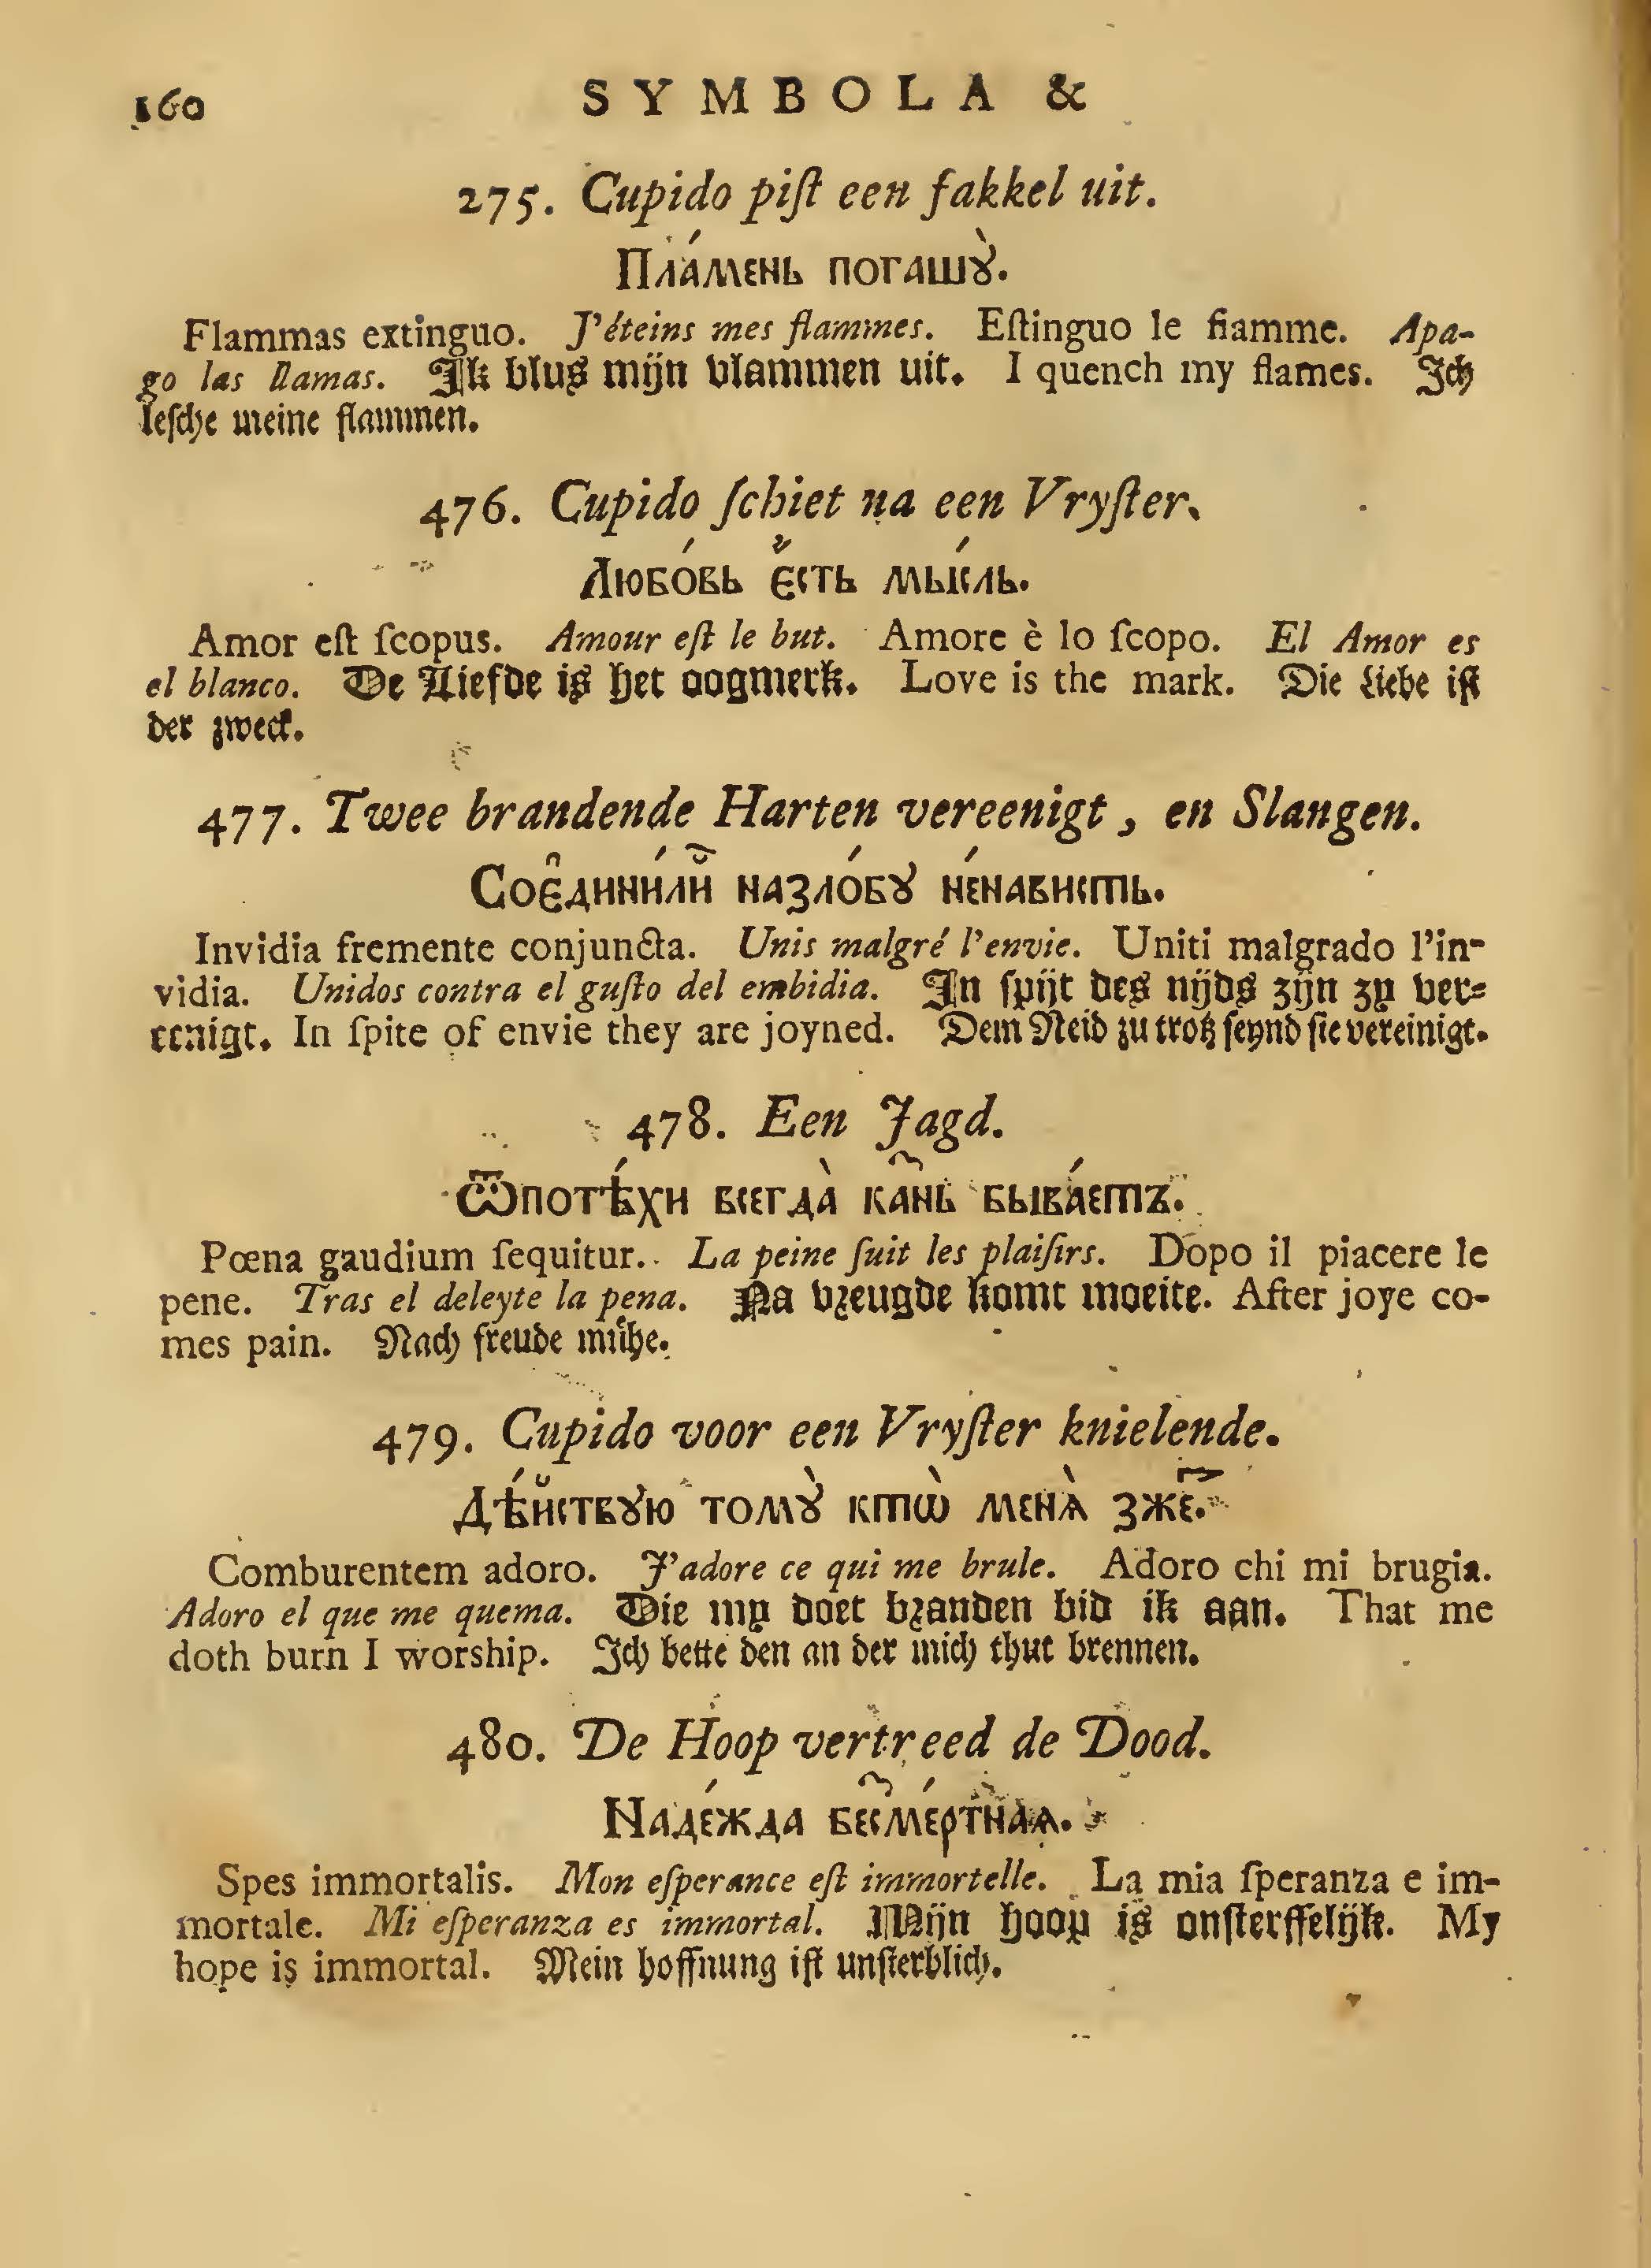 160 SYMBOLA &
275. Cupido piſt een fakkel uit.
Пла́мень погашꙋ̀.
Flammas extinguo. J'éteins mes flammes. Eſtinguo le fiamme. Apa-
go las llamas. Ik bluſ mijn vlammen uit. I quench my flames. Ich
leſche meine flammen.
476. Cupido ſchiet na een Vryſter.
Любо́вь є҆́сть мы́сль.
Amor eſt ſcopus. Amour eſt le but. Amore è lo ſcopo. El Amor es
el blanco. De Liefde is het oogmerk. Love is the mark. Die Liebe iſt
der zweck.
477. Twee brandende Harten vereenigt, en Slangen.
Соє҆дини́лий назло́бꙋ не́нависть.
Invidia fremente conjuncta. Unis malgré l'envie. Uniti malgrado l'in-
vidia. Unidos contra el guſto del embidia. In ſpijt des nijds zijn zy ver-
eenigt. In ſpite of envie they are joyned. Dem Neid zu trotz ſeynd ſie vereinigt.
478. Een Jagd.
Ѿпотѣ́хи всегда̀ ка̑нь быва́етъ.
Pœna gaudium ſequitur. La peine ſuit les plaiſirs. Dopo il piacere le
pene. Tras el deleyte la pena. Na vreugde komt moeite. After joye co-
mes pain. Nach freude mühe.
479. Cupido voor een Vryſter knielende.
Дѣ́йствꙋю томꙋ̀ ктѡ̀ менѧ̀ зже.
Comburentem adoro. J'adore ce qui me brule. Adoro chi mi brugia.
Adoro el que me quema. Die my doet branden bid ik aan. That me
doth burn I worship. Ich bette den an der mich thut brennen.
480. De Hoop vertreed de Dood.
Наде́жда бесме́ртнаѧ.
Spes immortalis. Mon eſperance eſt immortelle. La mia ſperanza e im-
mortale. Mi eſperanza es immortal. Mijn hoop is onſterffelijk. My
hope is immortal. Mein hoffnung iſt unſterblich.